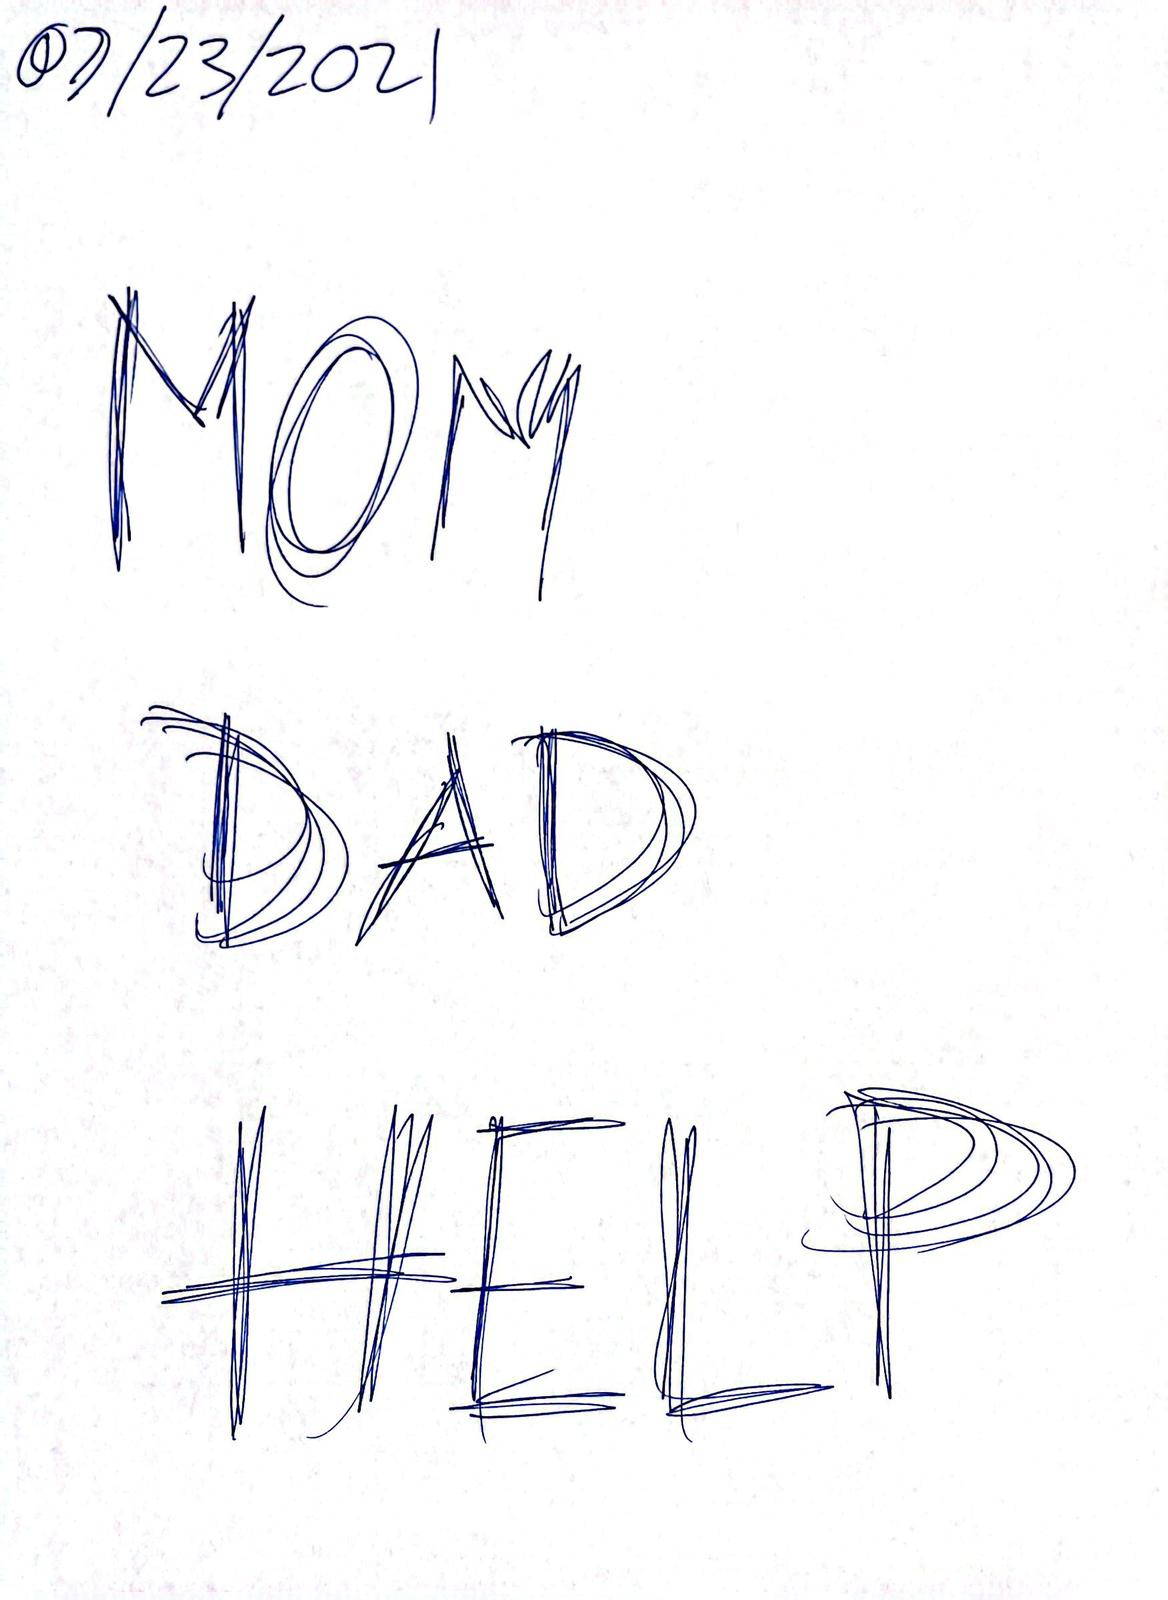 07/23/2021
MOM
DAD
HELP